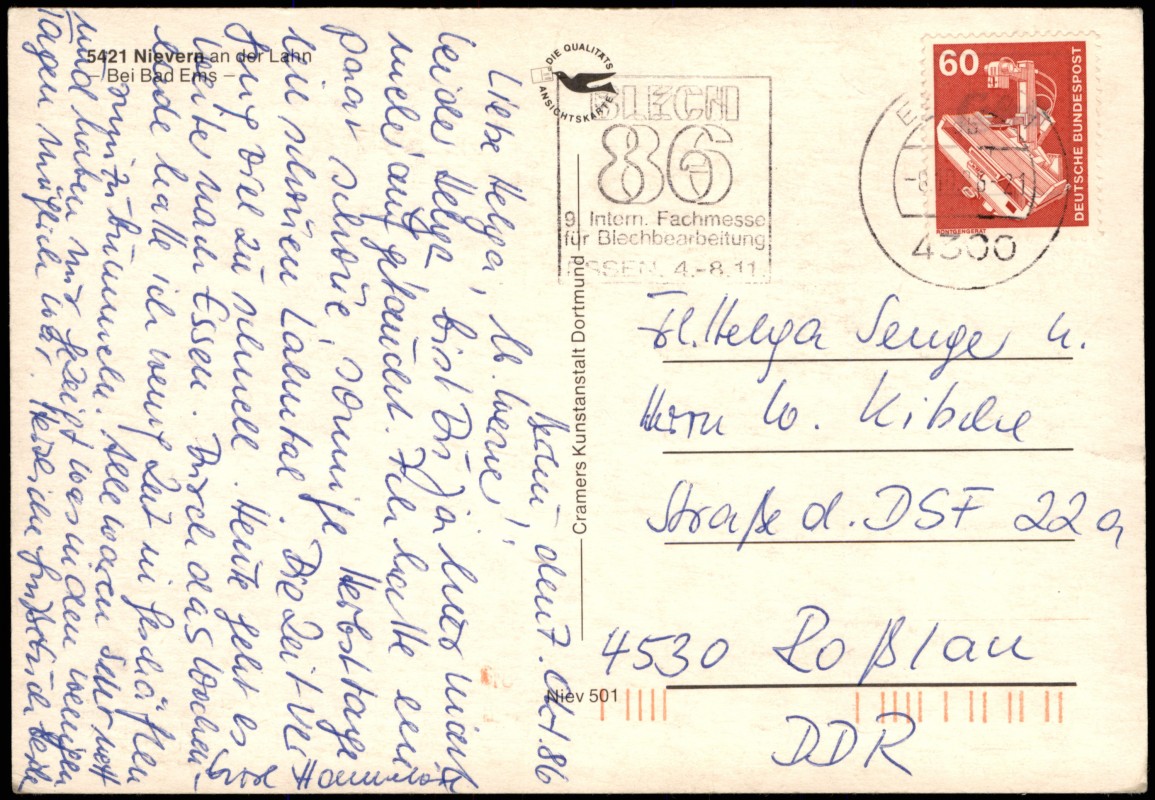 5421 Nievern an der Lahn
– Bei Bad Ems –
DIE QUALITÄTS
ANSICHTSKARTE
BLECH
86
9. Intern. Fachmesse
für Blechbearbeitung
ESSEN, 4.-8.11.
60
DEUTSCHE BUNDESPOST
RÖNTGENGERÄT
4300
Cramers Kunstanstalt Dortmund
Niev 501
den 7. Okt. 86
Liebe Helga, lb. Werner!
leider Helga bist Du ja hier nicht
mehr aufgetaucht. Ich hatte ein
paar schöne, sonnige Herbsttage
im schönen Lahntal. Die Zeit ver
ging viel zu schnell. Heute geht es
weiter nach Essen. Durch das Wochen-
ende hatte ich wenig Zeit in Geschäften
herumzubummeln. Alle waren sehr nett
und haben mir gezeigt was in den wenigen
Tagen möglich war. Herzliche Grüße
Eure Hannelore
Frl. Helga Senge u.
Herrn W.
Straße d. DSF 22a
4530 Roßlau
DDR